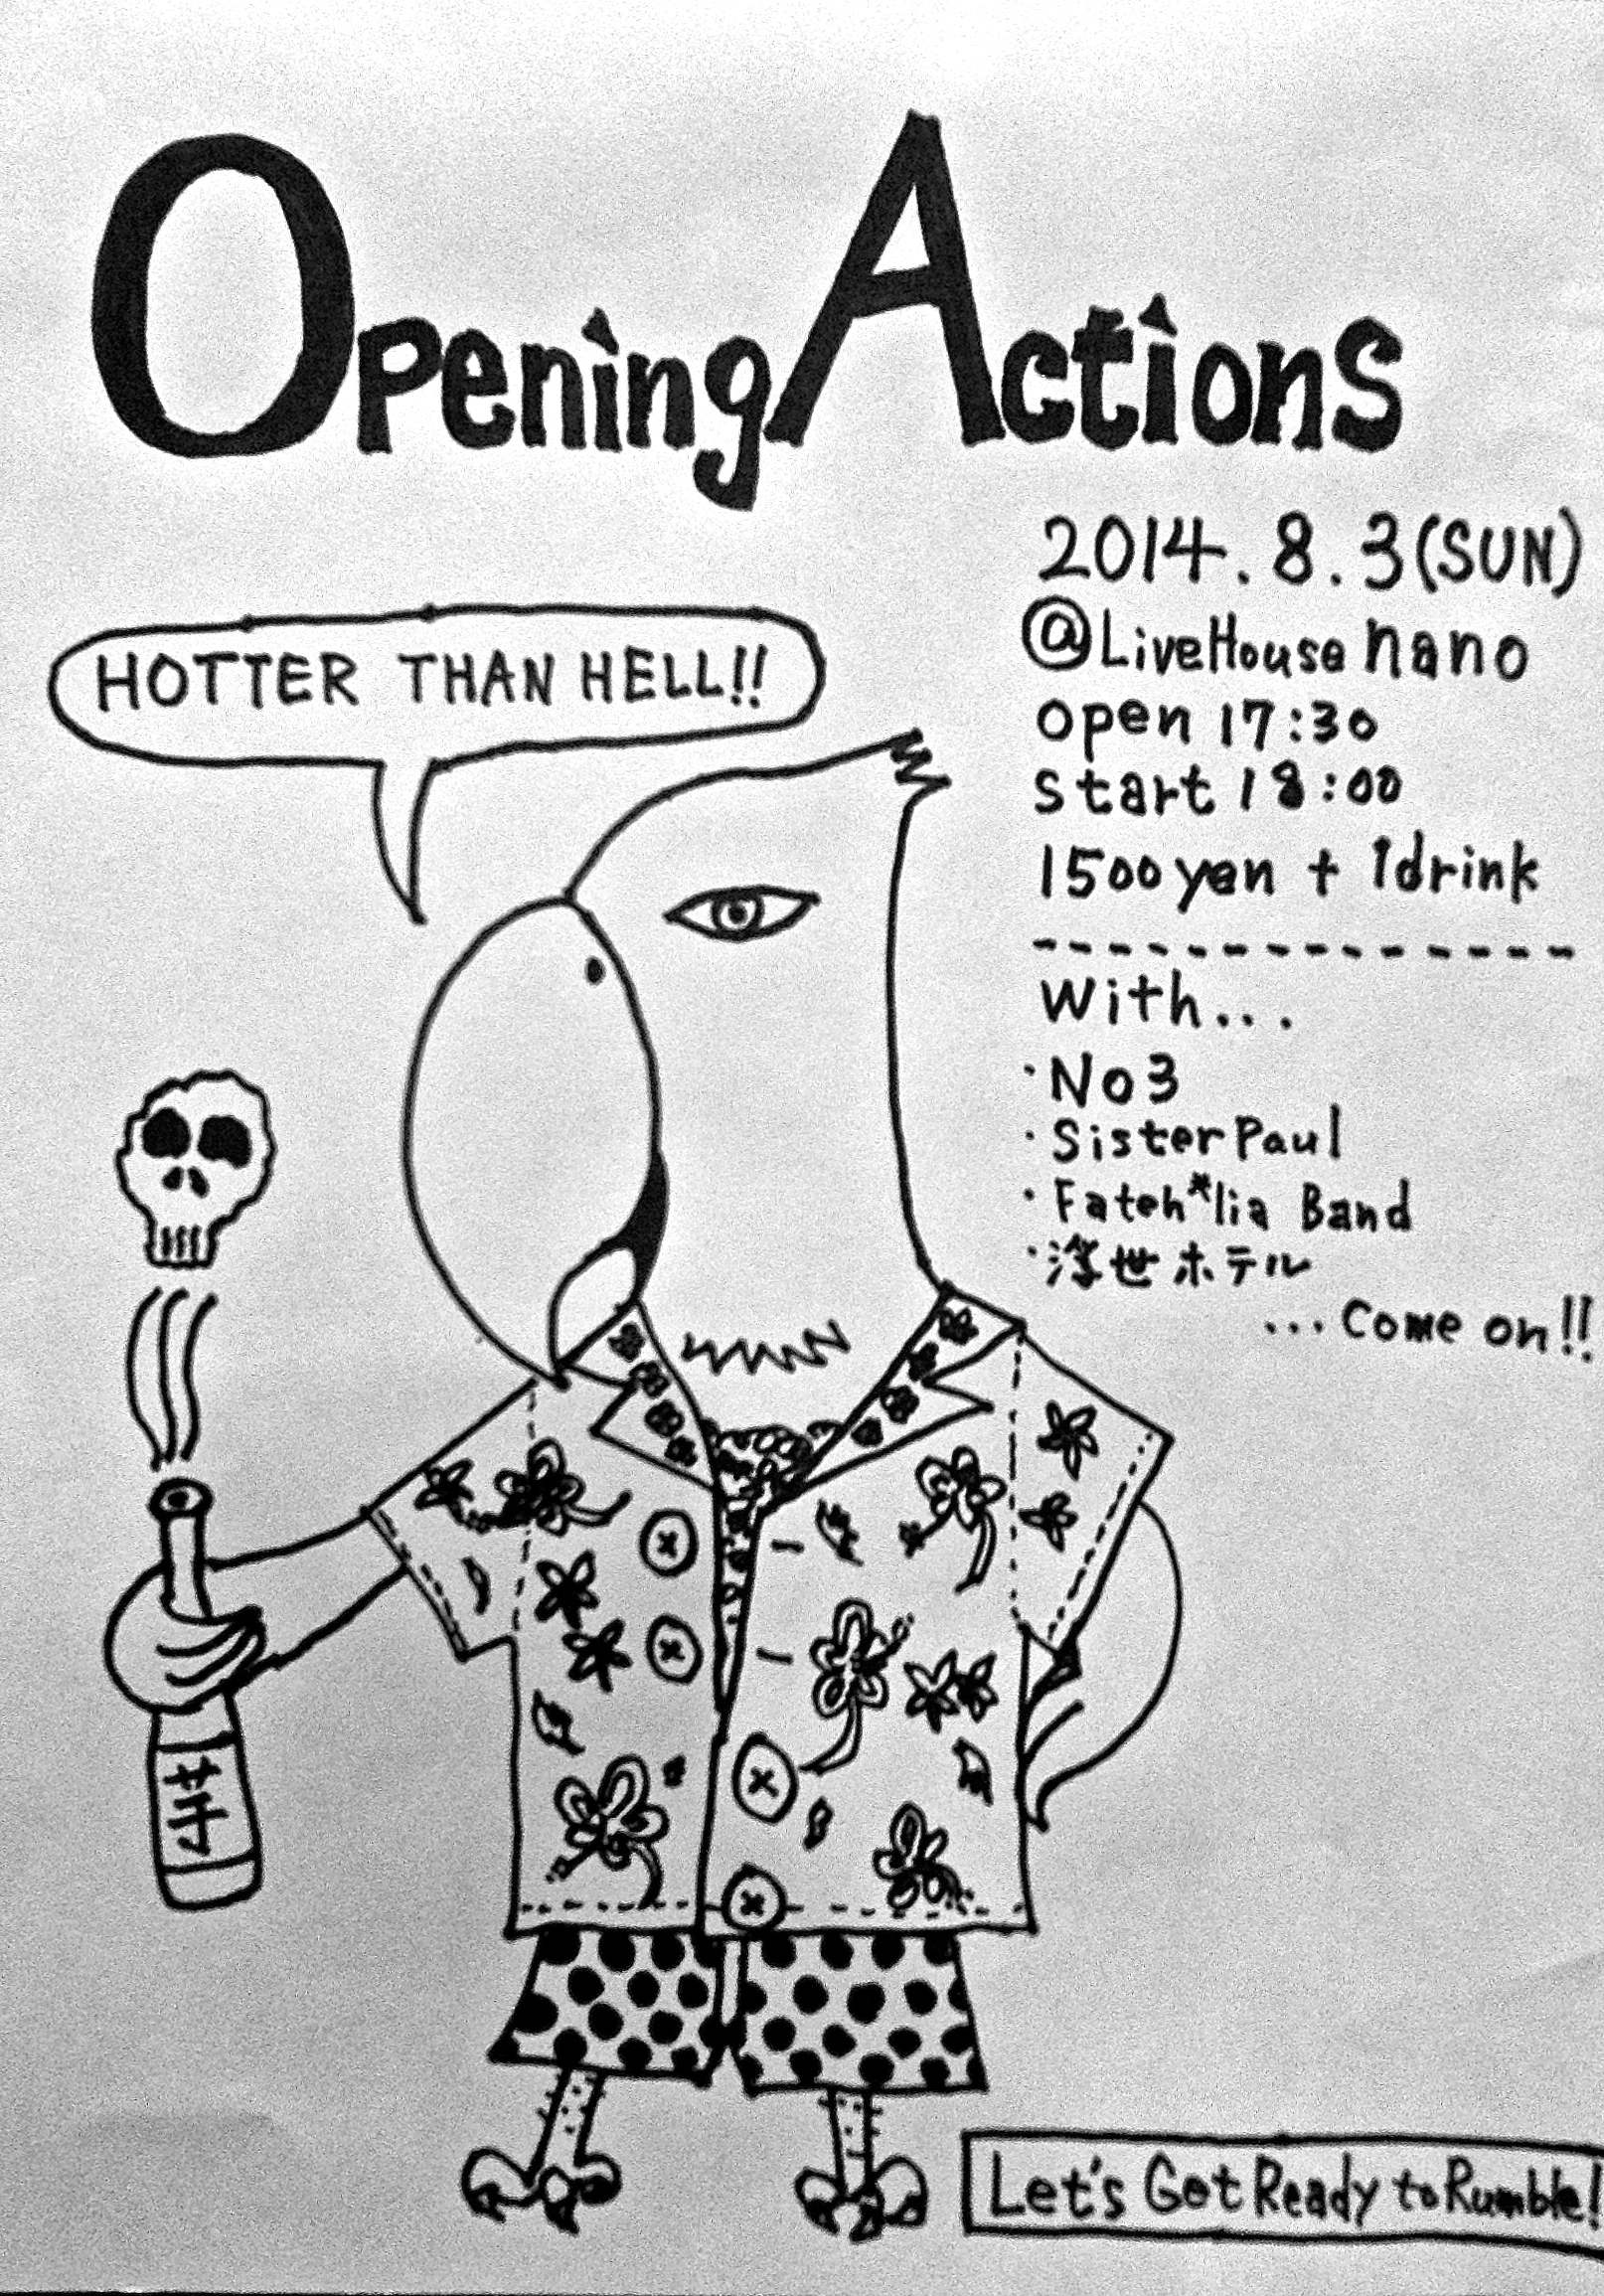 Opening Actions
2014.8.3(SUN)
@LiveHouse nano
open 17:30
start 18:00
1500yen + 1drink
---------------
With...
・No3
・Sister Paul
・Fateh*lia Band
・浮世ホテル
...Come on!!
HOTTER THAN HELL!!
芋
Let's Get Ready to Rumble!